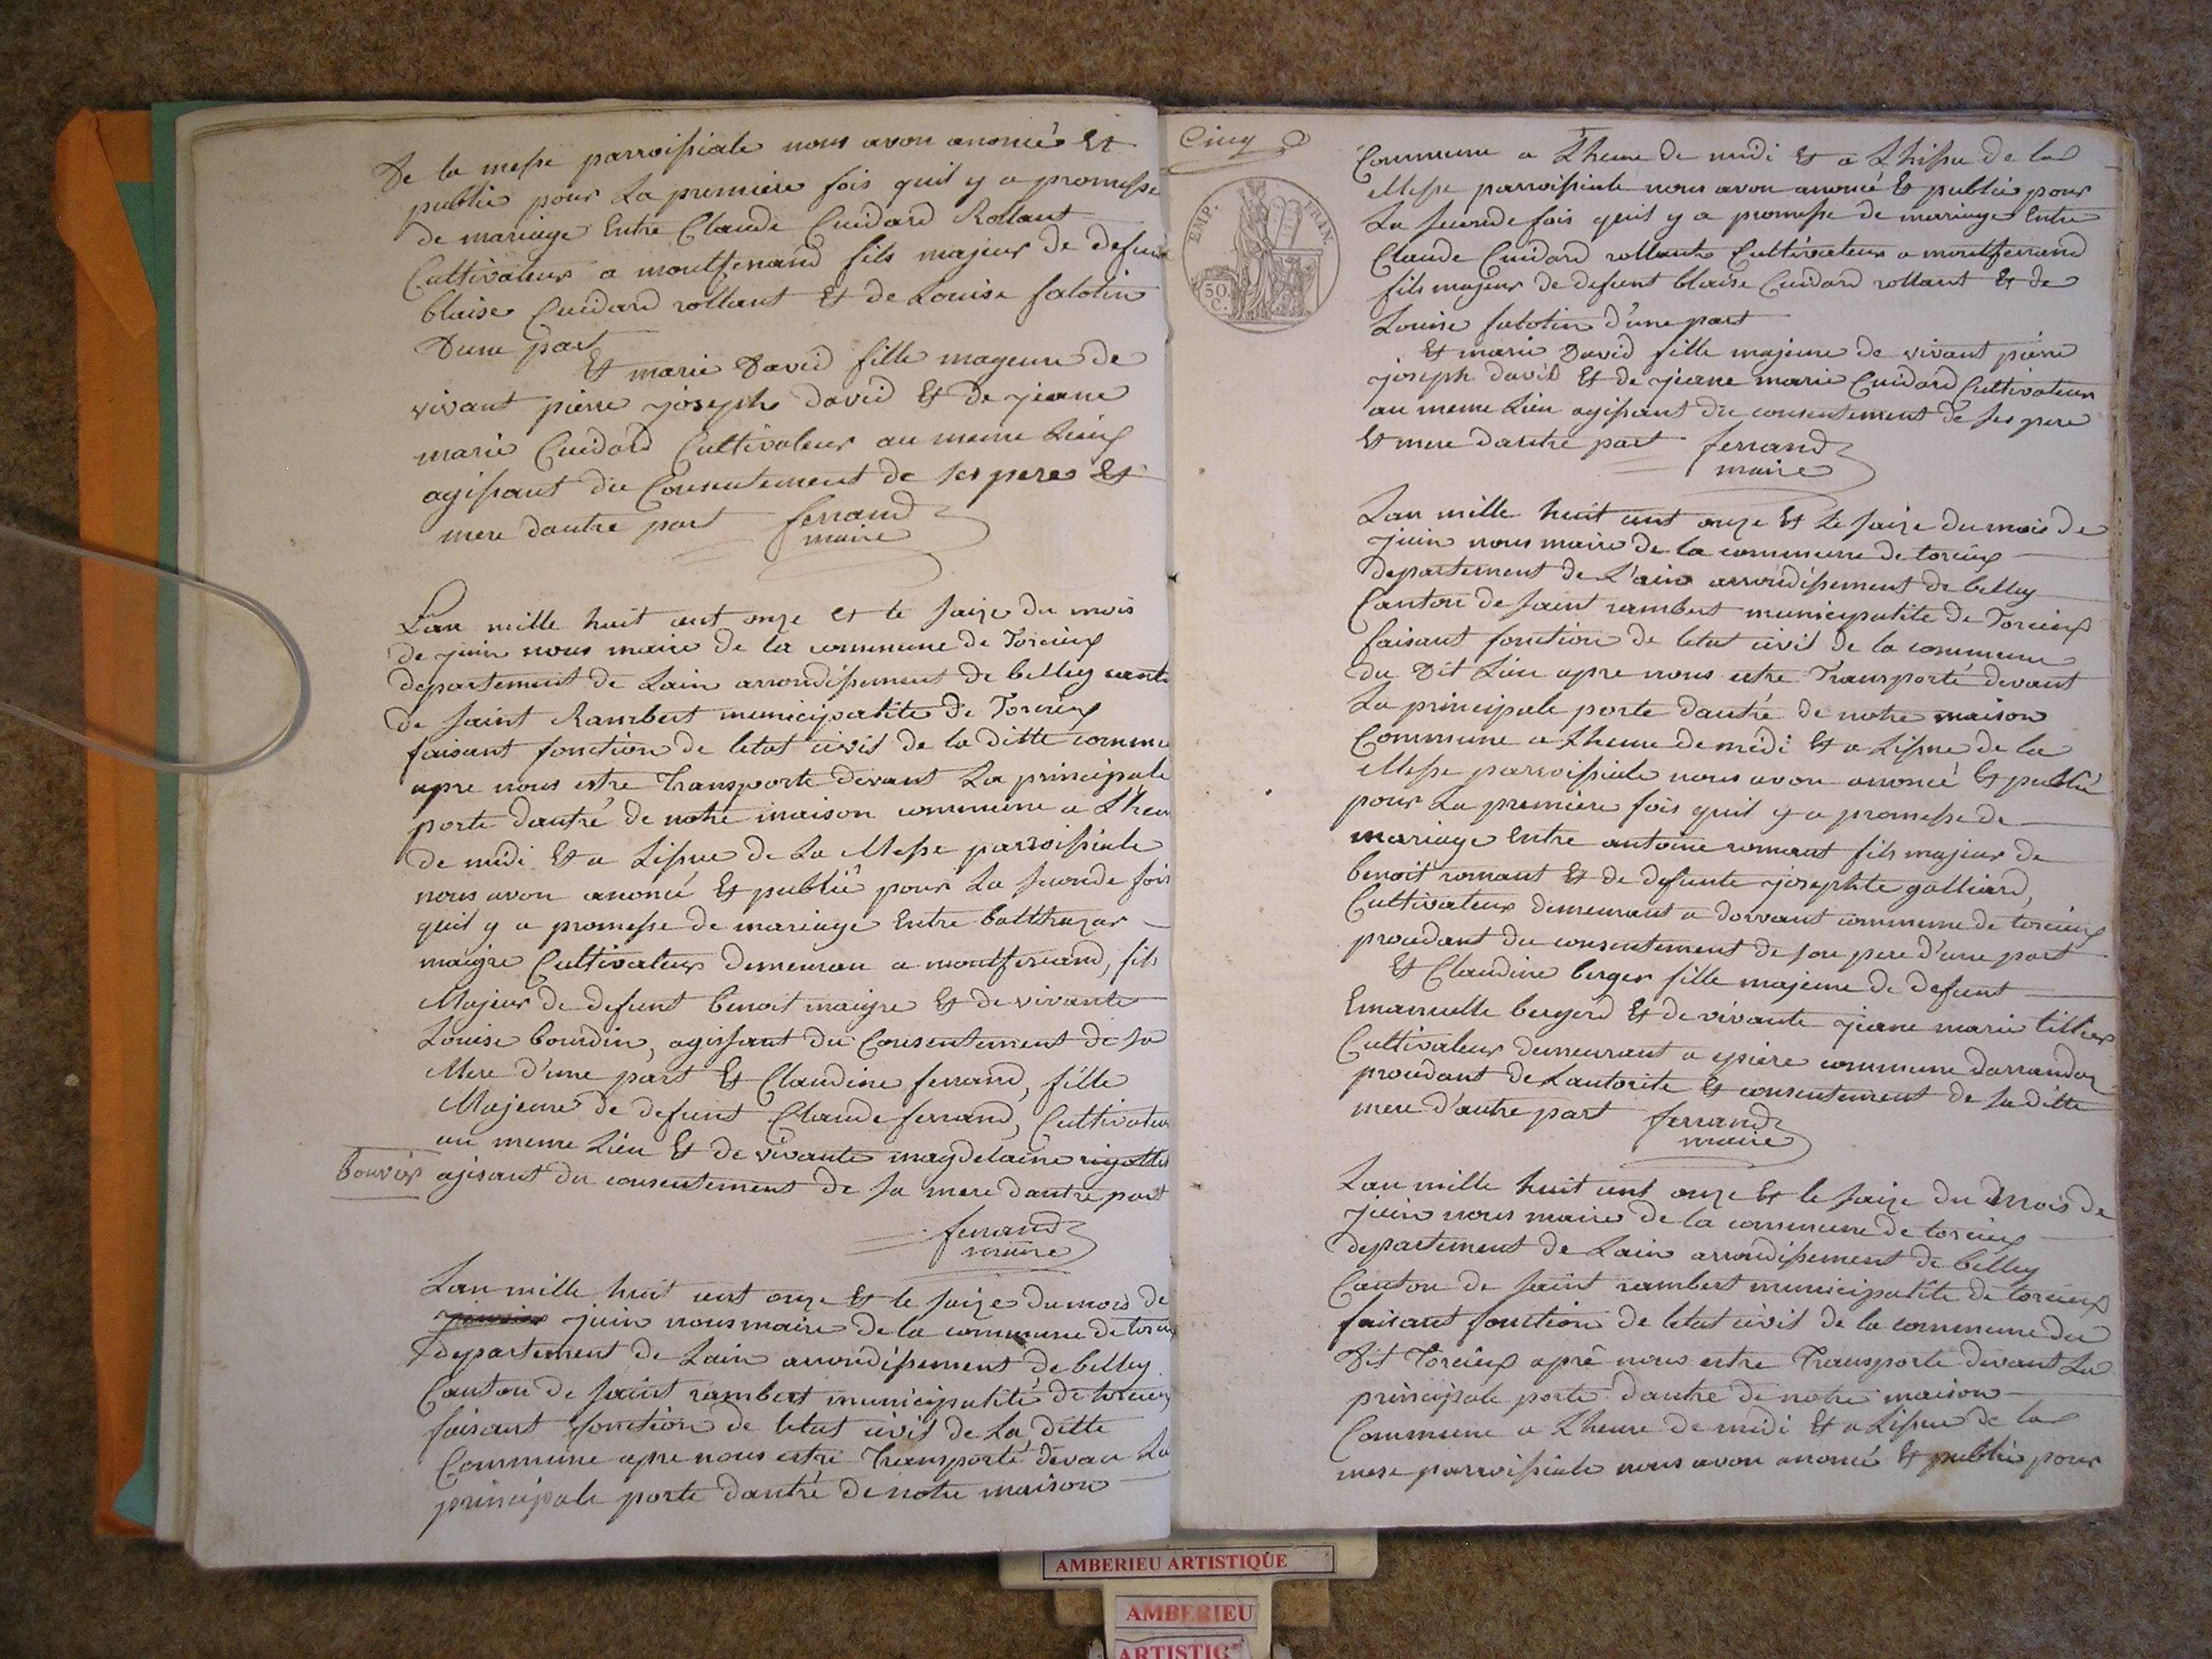 De la messe parroissiale nous avon anoncé Et
publié pour La premiere fois quil y a promesse
de mariage Entre Claude Cuidard Rollant
Cultivateur a montferrand fils majeur de defunt
blaise Cuidard rollant Et de Louise falotin
Dune part
Et marie David fille mageure de
vivant pierre joseph david Et de jeane
marie Cuidard Cultivateur au meme Lieux
agissant du Consentement de ses pere Et
mere dautre part ferrand
maire
Lan mille huit cent onze et le saize du mois
de juin nous maire de la commune de Torcieux
departement de Lain arrondissement de belley canto
de saint Rambert municipalité de Torcieux
faisant fonction de letat civil de la ditte commu
apre nous estre Transporté devant La principale
porte dantré de notre maison commune a Lheu
de midi Et a Lissue de La Messe parroissiale
nous avon anoncé Et publié pour La seconde fois
quil y a promesse de mariage Entre balthazar
maigre Cultivateur demeuran a montferrand, fils
Majeur de defunt benoit maigre Et de vivante
Louise bourdin, agissant du Consentement de sa
Mere d'une part Et Claudine ferrand, fille
Majeure de defunt Claude ferrand, Cultivateur
au meme Lieu Et de vivante magdelaine rigottes
bouvier agisant du consentement de sa mere dautre part
ferrand
maire
Lan mille huit cent onze Et le saize du mois de
juin nous maire de la commune de torcieu
departement de Lain arrondissement de belley
Canton de saint rambert municipalité de torcieux
faisant fonction de letat civil de La ditte
Commune apre nous estre Transporté devan La
principale porte dantré de notre maison
Cinq
EMP. FRIN.
50 C.
Commune a Lheure de midi Et a Lhissue de la
Messe parroissiale nous avon anoncé Et publié pour
La seconde fois quil y a promesse de mariage Entre
Claude Cuidard rollant Cultivateur a montferrand
fils majeur de defunt blaise Cuidard rollant Et de
Louise falotin d'une part
Et marie David fille majeure de vivant pierre
joseph david Et de jeane marie Cuidard Cultivateur
au meme Lieu agissant du consentement de ses pere
Et mere dautre part ferrand
maire
Lan mille huit cent onze Et le saize du mois de
juin nous maire de la commune de torcieux
departement de L'ain arrondissement de belley
Canton de saint rambert municipalité de Torcieux
faisant fonction de letat civil de la commune
du Dit Lieu apre nous estre Transporté devant
La principale porte dantré de notre maison
Commune a Lheure de midi Et a Lissue de la
Messe parroissiale nous avon anoncé Et publié
pour La premiere fois quil y a promesse de
mariage Entre antoine romant fils majeur de
benoit romant Et de defunte josephte galliard,
Cultivateur demeurant a dorvant commune de torcieux
procedant du consentement de son pere d'une part
Et Claudine berger fille majeure de defunt
Emanuelle bergerd Et de vivante jeane marie tillier
Cultivateur demeurant a epiere commune darrandaz
procedant de Lautorite Et consentement de sa ditte
mere d'autre part ferrand
maire
Lan mille huit cent onze Et le saize du mois de
juin nous maire de la commune de torcieux
departement de Lain arrondissement de belley
Canton de saint rambert municipalité de torcieux
faisant fonction de letat civil de la commune du
Dit Torcieux apré nous estre Transporté devant La
principale porte dantre de notre maison
Commune a Lheure de midi Et a Lissue de la
mese parroissiale nous avon anoncé Et publié pour
AMBERIEU ARTISTIQUE
AMBERIEU